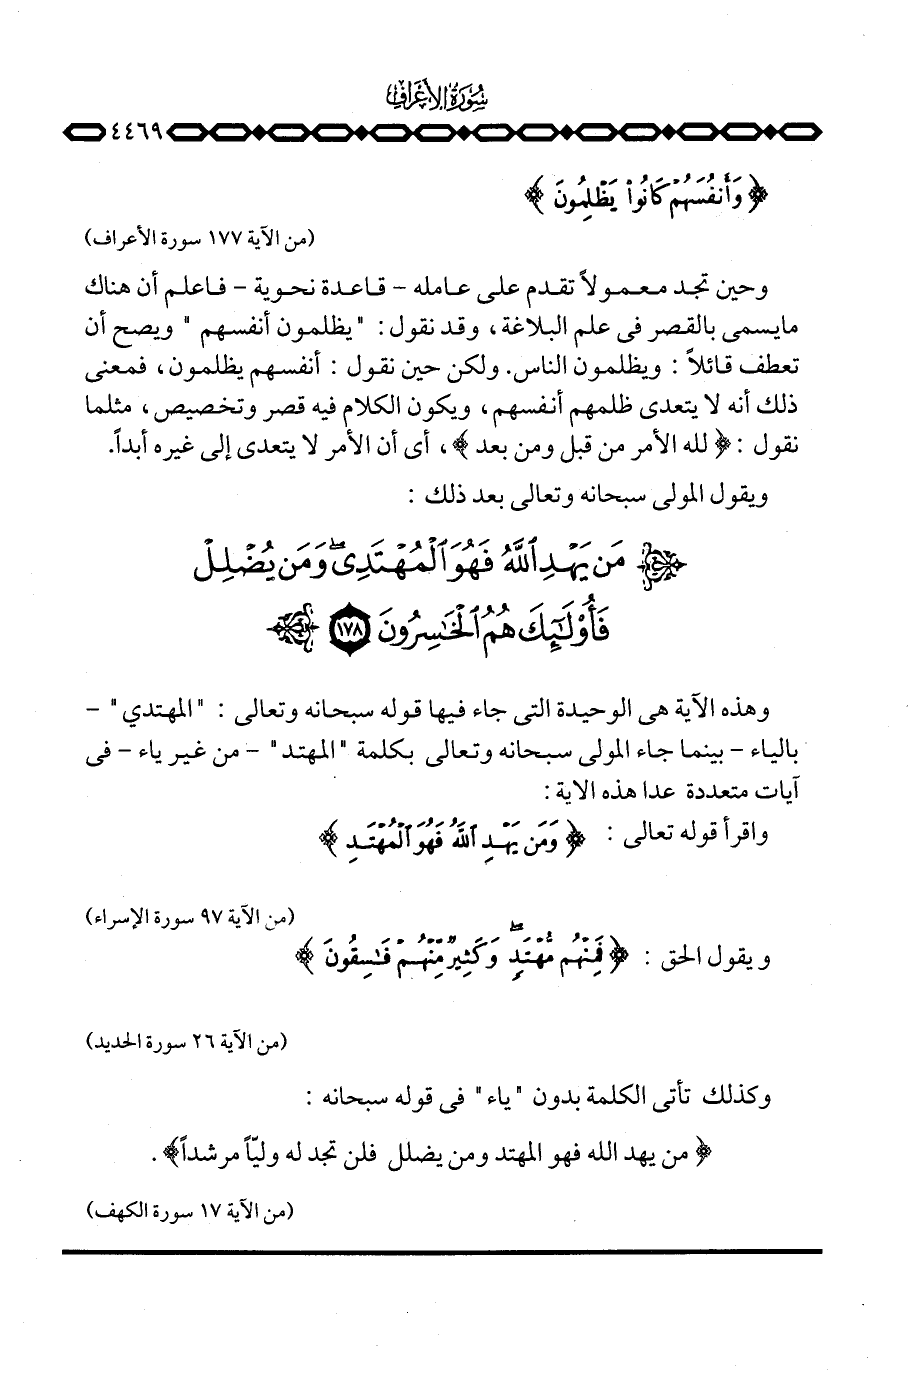 سُورَةُ الأَعْرَافِ
٤٤٦٩
﴿ وَأَنفُسَهُمْ كَانُوا۟ يَظْلِمُونَ ﴾
(من الآية ١٧٧ سورة الأعراف)
وحين تجد معمولاً تقدم على عامله - قاعدة نحوية - فاعلم أن هناك
مايسمى بالقصر فى علم البلاغة، وقد نقول: "يظلمون أنفسهم " ويصح أن
تعطف قائلاً : ويظلمون الناس. ولكن حين نقول : أنفسهم يظلمون، فمعنى
ذلك أنه لا يتعدى ظلمهم أنفسهم، ويكون الكلام فيه قصر وتخصيص، مثلما
نقول : ﴿ لله الأمر من قبل ومن بعد ﴾، أى أن الأمر لا يتعدى إلى غيره أبداً.
ويقول المولى سبحانه وتعالى بعد ذلك :
﴿ مَن يَهْدِ ٱللَّهُ فَهُوَ ٱلْمُهْتَدِى ۖ وَمَن يُضْلِلْ
فَأُو۟لَـٰٓئِكَ هُمُ ٱلْخَـٰسِرُونَ ١٧٨ ﴾
وهذه الآية هى الوحيدة التى جاء فيها قوله سبحانه وتعالى : "المهتدي" -
بالياء - بينما جاء المولى سبحانه وتعالى بكلمة "المهتد" - من غير ياء - فى
آيات متعددة عدا هذه الاية :
واقرأ قوله تعالى : ﴿ وَمَن يَهْدِ ٱللَّهُ فَهُوَ ٱلْمُهْتَدِ ﴾
(من الآية ٩٧ سورة الإسراء)
ويقول الحق : ﴿ فَمِنْهُم مُّهْتَدٍ ۖ وَكَثِيرٌ مِّنْهُمْ فَـٰسِقُونَ ﴾
(من الآية ٢٦ سورة الحديد)
وكذلك تأتى الكلمة بدون "ياء" فى قوله سبحانه :
﴿ من يهد الله فهو المهتد ومن يضلل فلن تجد له وليّاً مرشداً﴾ .
(من الآية ١٧ سورة الكهف)